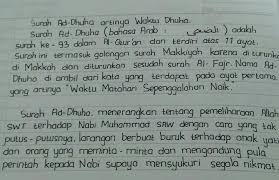 Surah Ad-Dhuha artinya Waktu Dhuha.
Surah Ad-Dhuha (bahasa Arab : الضحى) adalah
surah ke-93 dalam Al-Qur'an dan terdiri atas 11 ayat.
Surah ini termasuk golongan surah Makkiyah karena diturunkan
di Makkah dan diturunkan sesudah surah Al-Fajr. Nama Ad-
Dhuha di ambil dari kata yang terdapat pada ayat pertama
yang artinya "Waktu Matahari Sepenggalahan Naik.
Surah Ad-Dhuha, menerangkan tentang pemeliharaan Allah
SWT terhadap Nabi Muhammad SAW dengan cara yang tak
putus-putusnya, larangan berbuat buruk terhadap anak yati
dan orang yang meminta-minta dan mengandung pula
perintah kepada Nabi supaya mensyukuri segala nikmat.